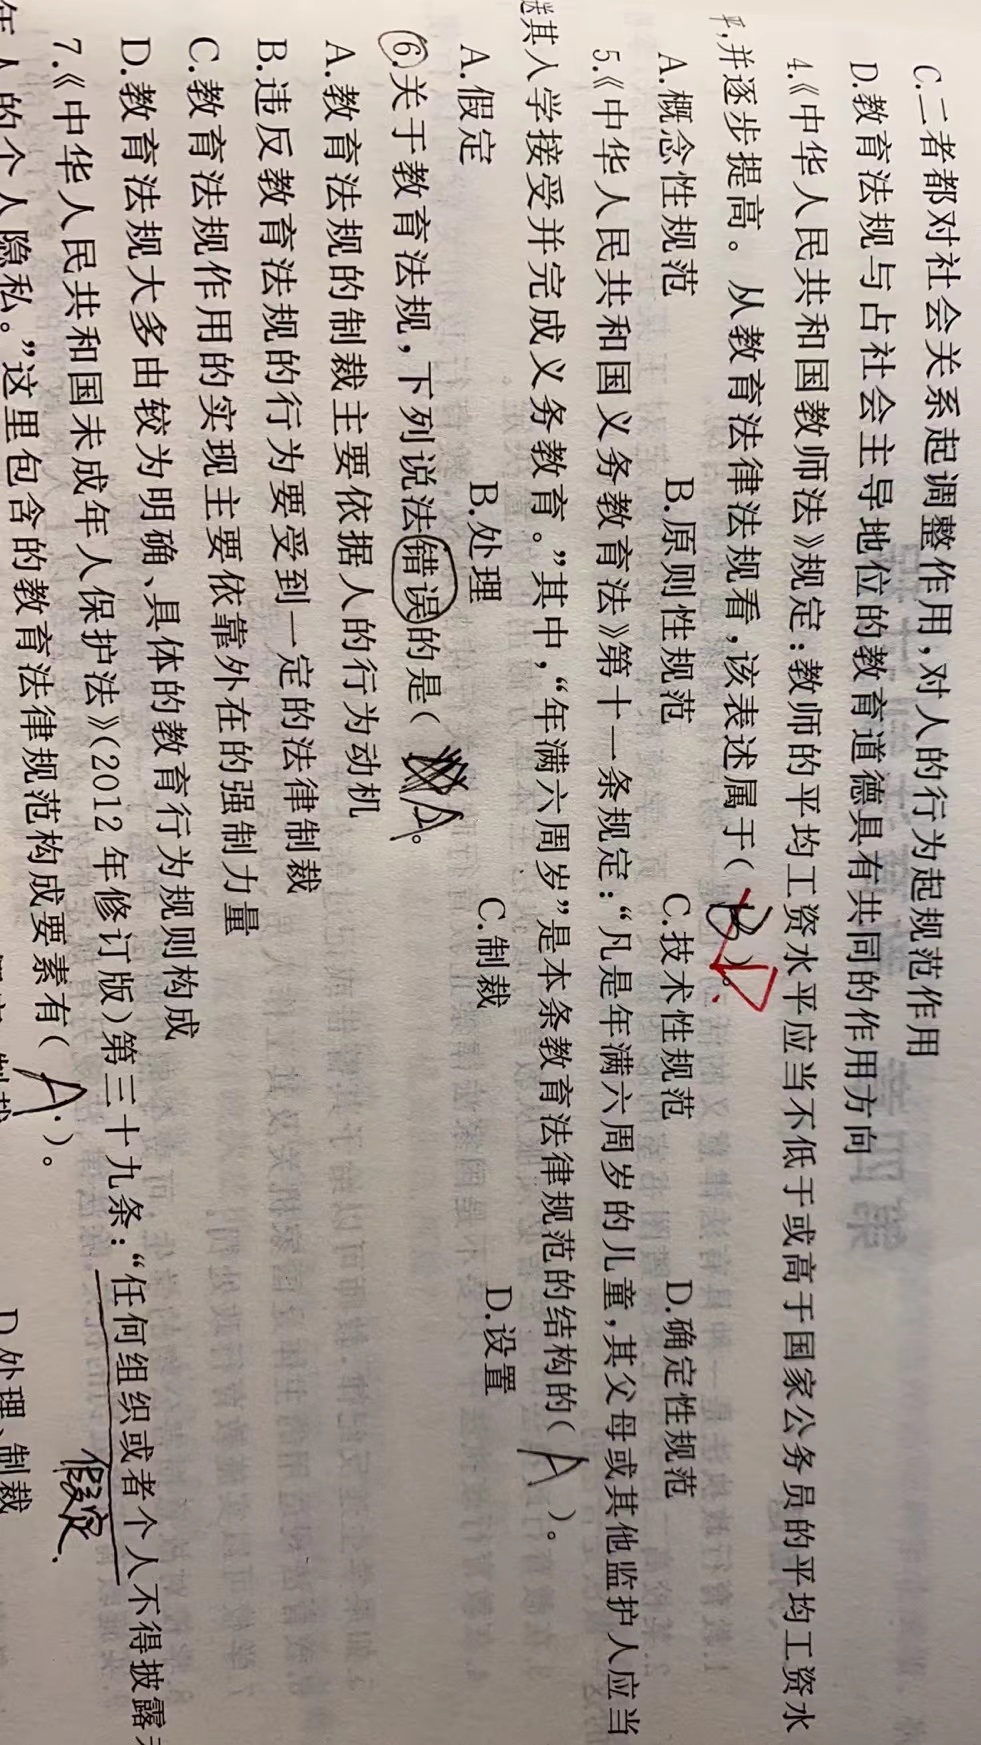 C.二者都对社会关系起调整作用,对人的行为起规范作用
D.教育法规与占社会主导地位的教育道德具有共同的作用方向
4.《中华人民共和国教师法》规定:教师的平均工资水平应当不低于或高于国家公务员的平均工资水
平,并逐步提高。从教育法律法规看,该表述属于( B )。
A.概念性规范 B.原则性规范 C.技术性规范 D.确定性规范
5.《中华人民共和国义务教育法》第十一条规定:“凡是年满六周岁的儿童,其父母或其他监护人应当
送其入学接受并完成义务教育。”其中,“年满六周岁”是本条教育法律规范的结构的( A )。
A.假定 B.处理 C.制裁 D.设置
6.关于教育法规,下列说法错误的是( A )。
A.教育法规的制裁主要依据人的行为动机
B.违反教育法规的行为要受到一定的法律制裁
C.教育法规作用的实现主要依靠外在的强制力量
D.教育法规大多由较为明确、具体的教育行为规则构成
7.《中华人民共和国未成年人保护法》(2012年修订版)第三十九条:“任何组织或者个人不得披露
假定
年人的个人隐私。”这里包含的教育法律规范构成要素有( A. )。
D.处理、制裁